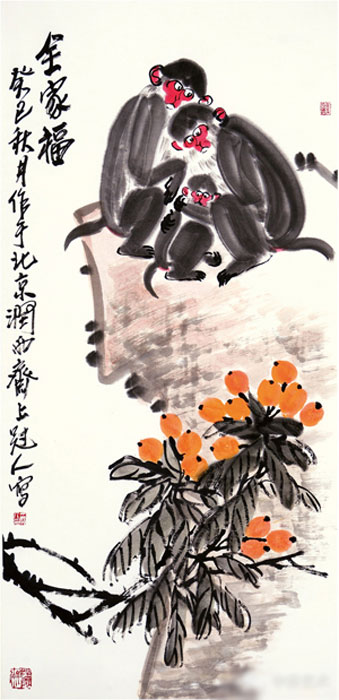 全家福
癸巳秋月作于北京润西斋上冠人写